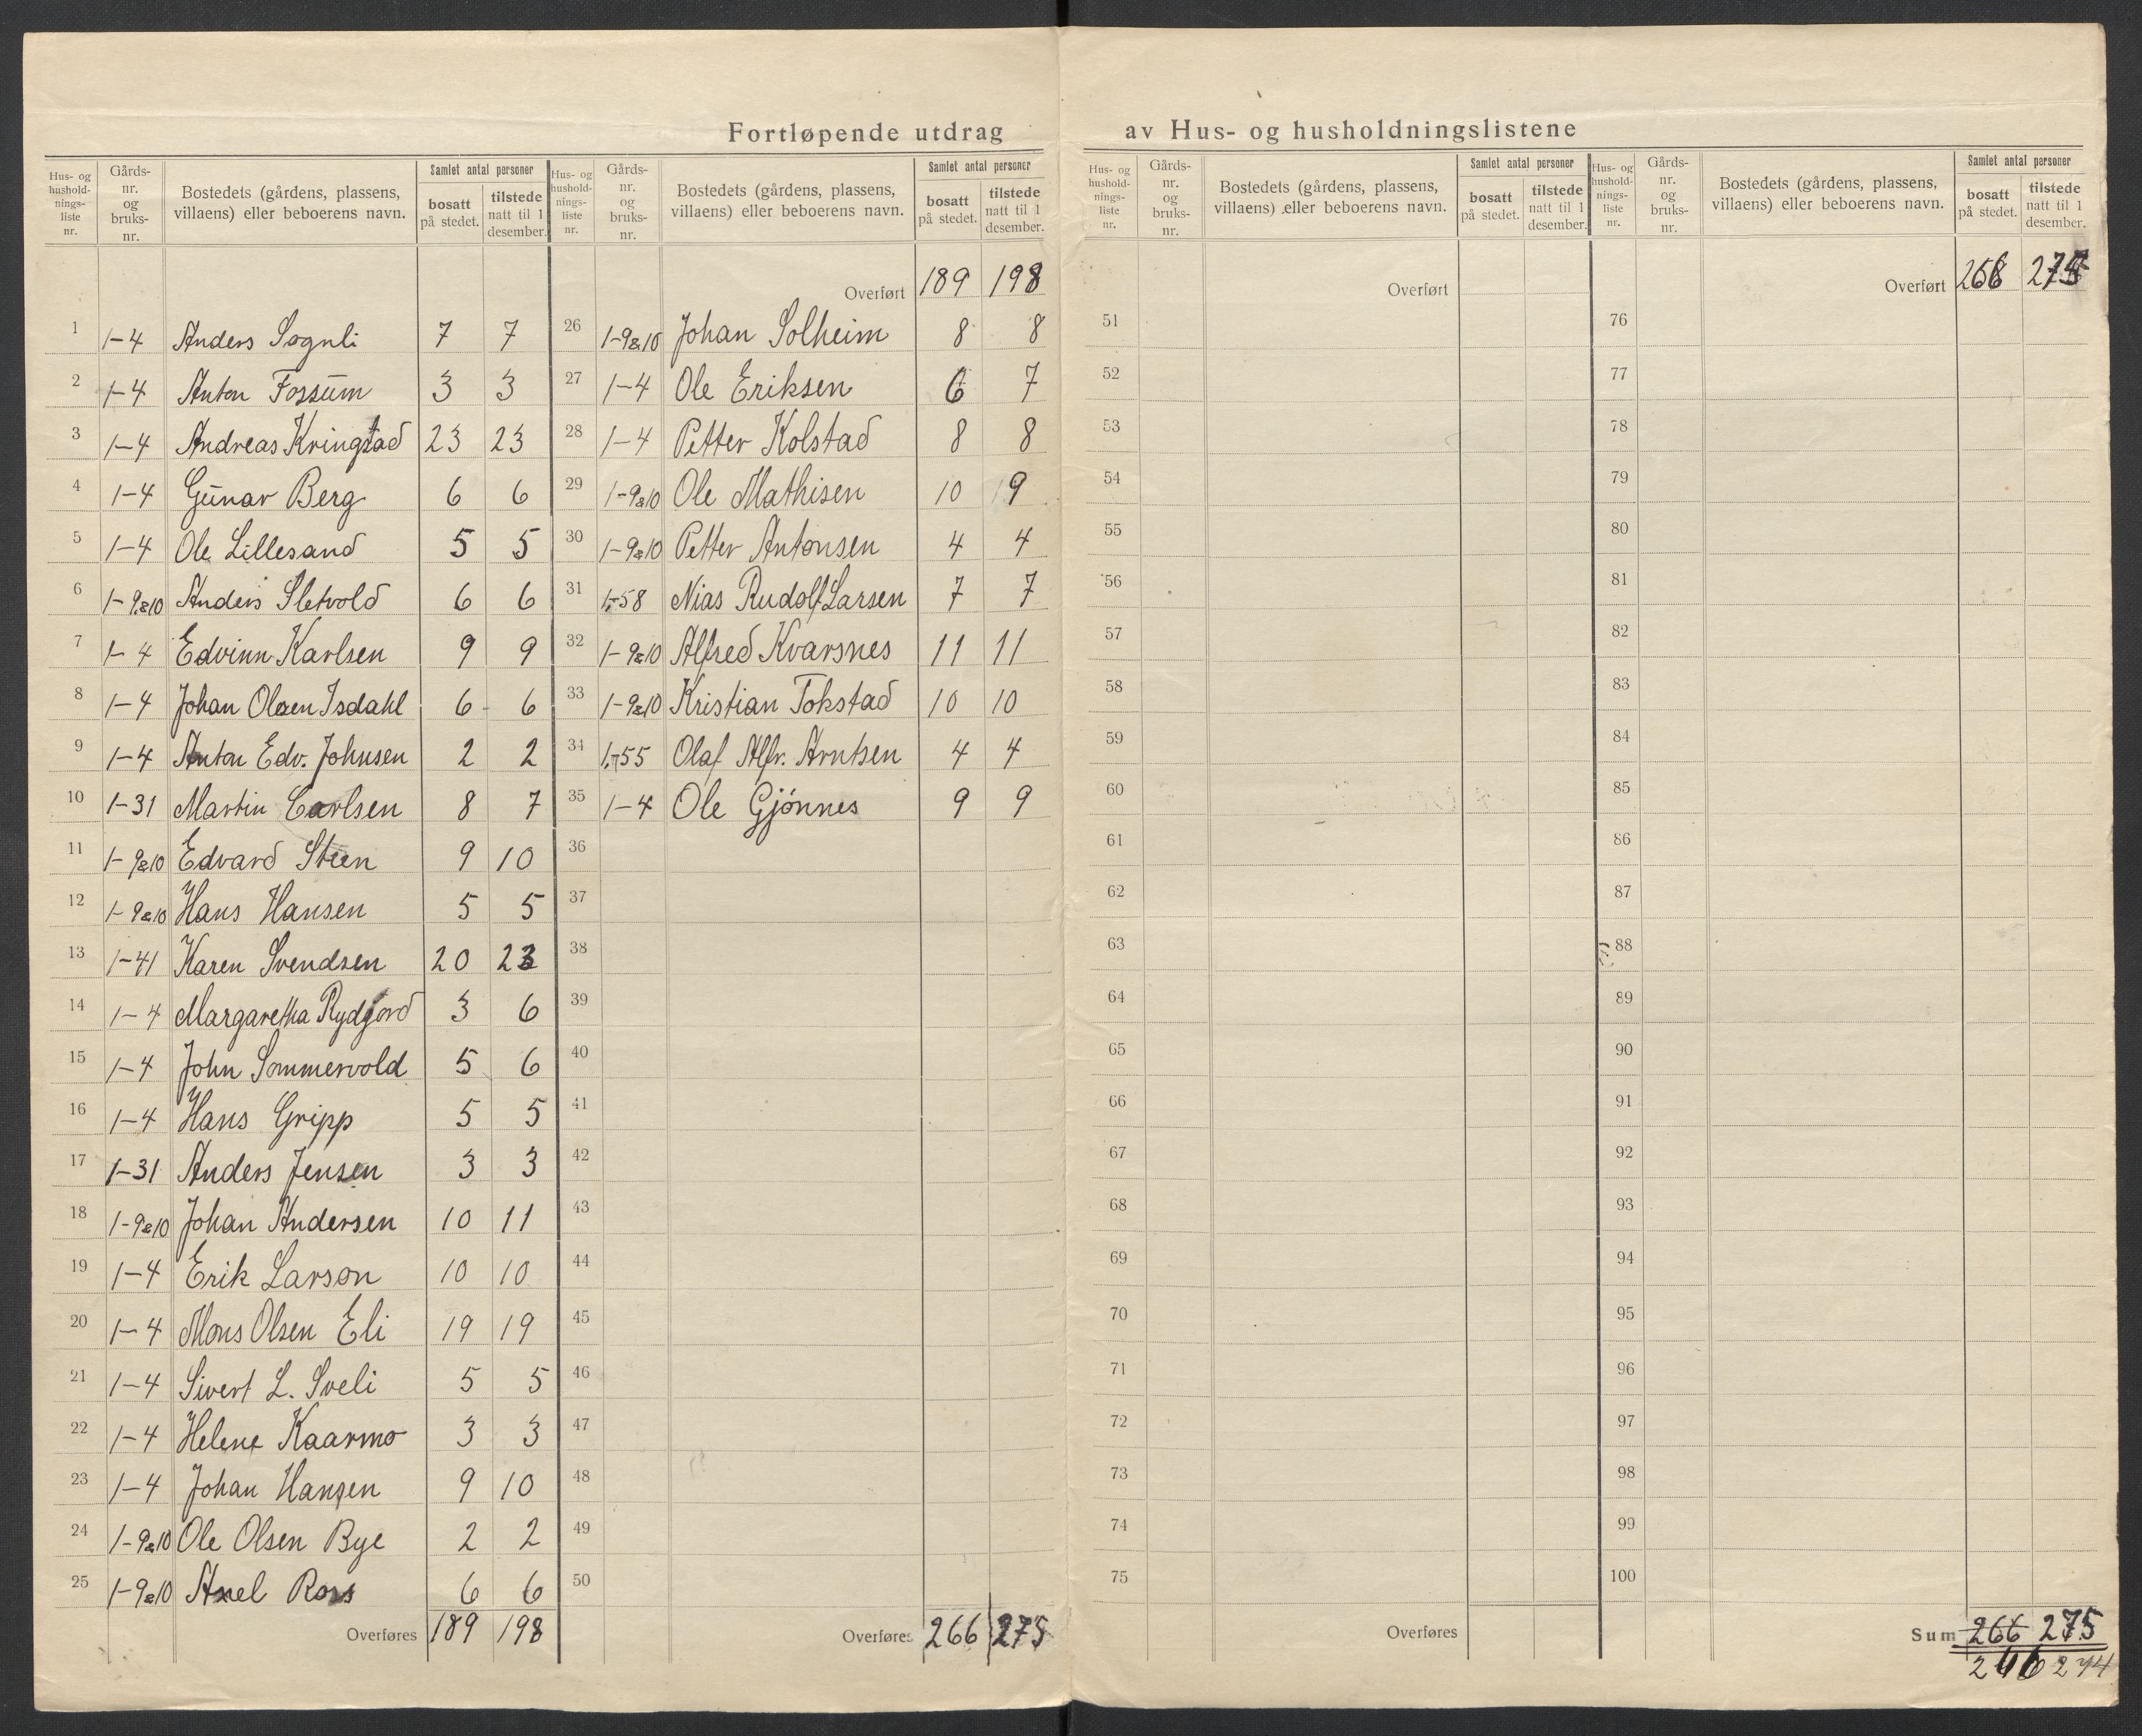 Fortløpende utdrag av Hus- og husholdningslistene
Hus- og hushold-nings-liste nr. Gårds-nr. og bruks-nr. Bostedets (gårdens, plassens, villaens) eller beboerens navn. Samlet antal personer bosatt på stedet. tilstede natt til 1 desember.
1 1-4 Anders Sognli 7 7
2 1-4 Anton Fossum 3 3
3 1-4 Andreas Kringstad 23 23
4 1-4 Gunar Berg 6 6
5 1-4 Ole Lillesand 5 5
6 1-9&10 Anders Sletvold 6 6
7 1-4 Edvinn Karlsen 9 9
8 1-4 Johan Olsen Isdahl 6 6
9 1-4 Anton Edv. Johnsen 2 2
10 1-31 Martin Carlsen 8 7
11 1-9&10 Edvard Steen 9 10
12 1-9&10 Hans Hansen 5 5
13 1-41 Karen Svendsen 20 23
14 1-4 Margaretha Rydgjord 3 6
15 1-4 John Sommervold 5 6
16 1-4 Hans Gripp 5 5
17 1-31 Anders Jensen 3 3
18 1-9&10 Johan Andersen 10 11
19 1-4 Erik Larson 10 10
20 1-4 Mons Olsen Eli 19 19
21 1-4 Sivert L. Sveli 5 5
22 1-4 Helene Kaarmo 3 3
23 1-4 Johan Hansen 9 10
24 1-9&10 Ole Olsen Bye 2 2
25 1-9&10 Axel Ross 6 6
Overføres 189 198
Hus- og hushold-nings-liste nr. Gårds-nr. og bruks-nr. Bostedets (gårdens, plassens, villaens) eller beboerens navn. Samlet antal personer bosatt på stedet. tilstede natt til 1 desember.
Overført 189 198
26 1-9&10 Johan Solheim 8 8
27 1-4 Ole Eriksen 6 7
28 1-4 Petter Kolstad 8 8
29 1-9&10 Ole Mathisen 10 9
30 1-9&10 Petter Antonsen 4 4
31 1-58 Nias Rudolf Larsen 7 7
32 1-9&10 Alfred Kvarsnes 11 11
33 1-9&10 Kristian Tokstad 10 10
34 1-55 Olaf Alfr. Arntsen 4 4
35 1-4 Ole Gjönnes 9 9
36
37
38
39
40
41
42
43
44
45
46
47
48
49
50
Overføres 266 275
Hus- og hushold-nings-liste nr. Gårds-nr. og bruks-nr. Bostedets (gårdens, plassens, villaens) eller beboerens navn. Samlet antal personer bosatt på stedet. tilstede natt til 1 desember.
Overført
51
52
53
54
55
56
57
58
59
60
61
62
63
64
65
66
67
68
69
70
71
72
73
74
75
Overføres
Hus- og hushold-nings-liste nr. Gårds-nr. og bruks-nr. Bostedets (gårdens, plassens, villaens) eller beboerens navn. Samlet antal personer bosatt på stedet. tilstede natt til 1 desember.
Overført 266 275
76
77
78
79
80
81
82
83
84
85
86
87
88
89
90
91
92
93
94
95
96
97
98
99
100
Sum 266 275
274